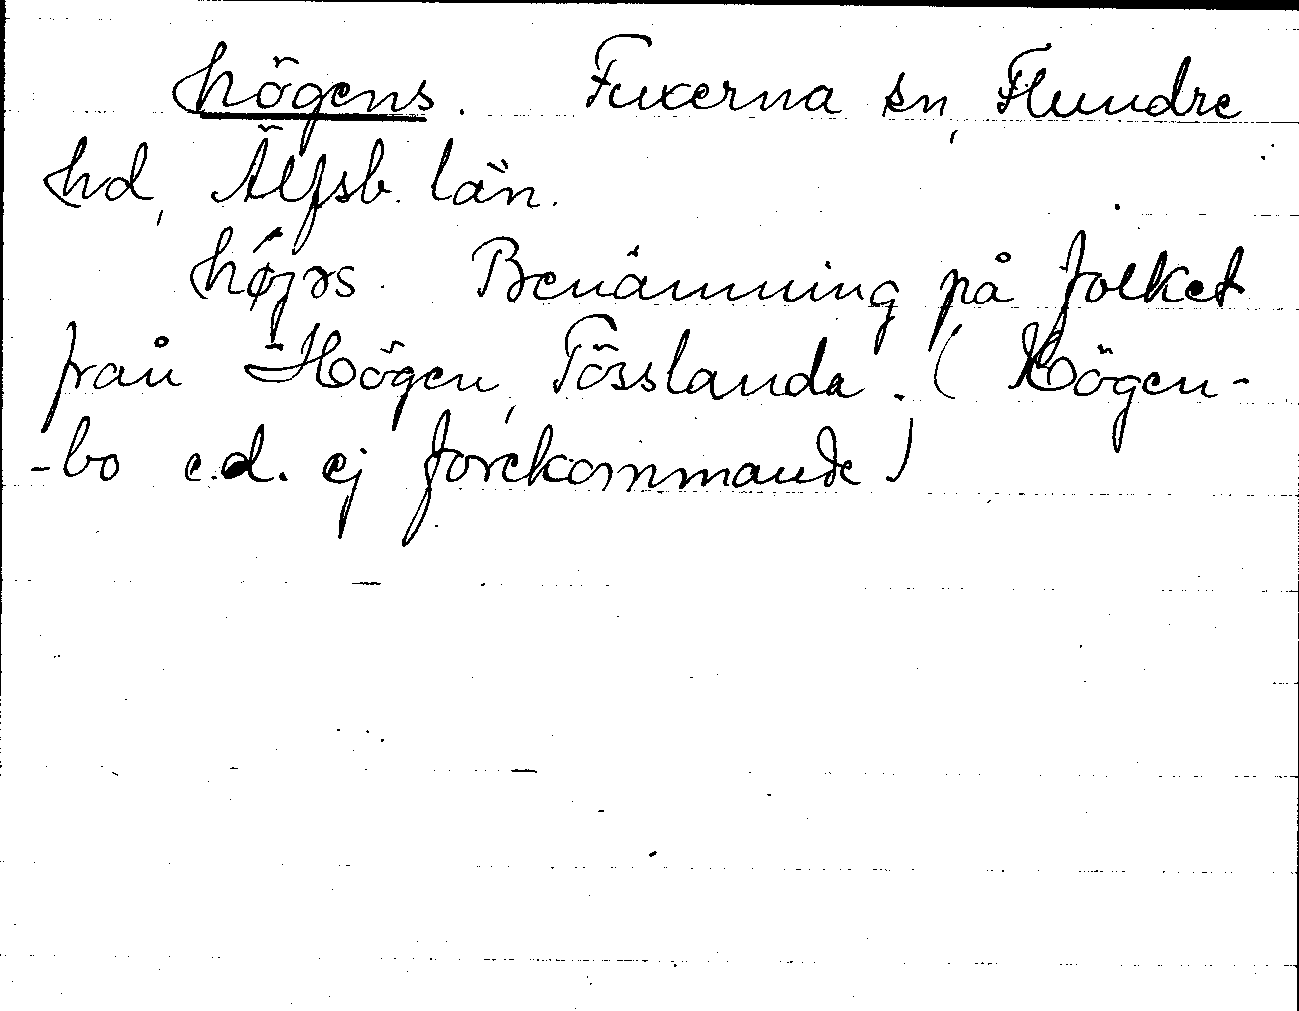 högens. Fuxerna sn, Flundre
hd, Älfsb. län.
hǿjəs. Benämning på folket
från Högen, Tösslanda. (Högen-
-bo e.d. ej förekommande)